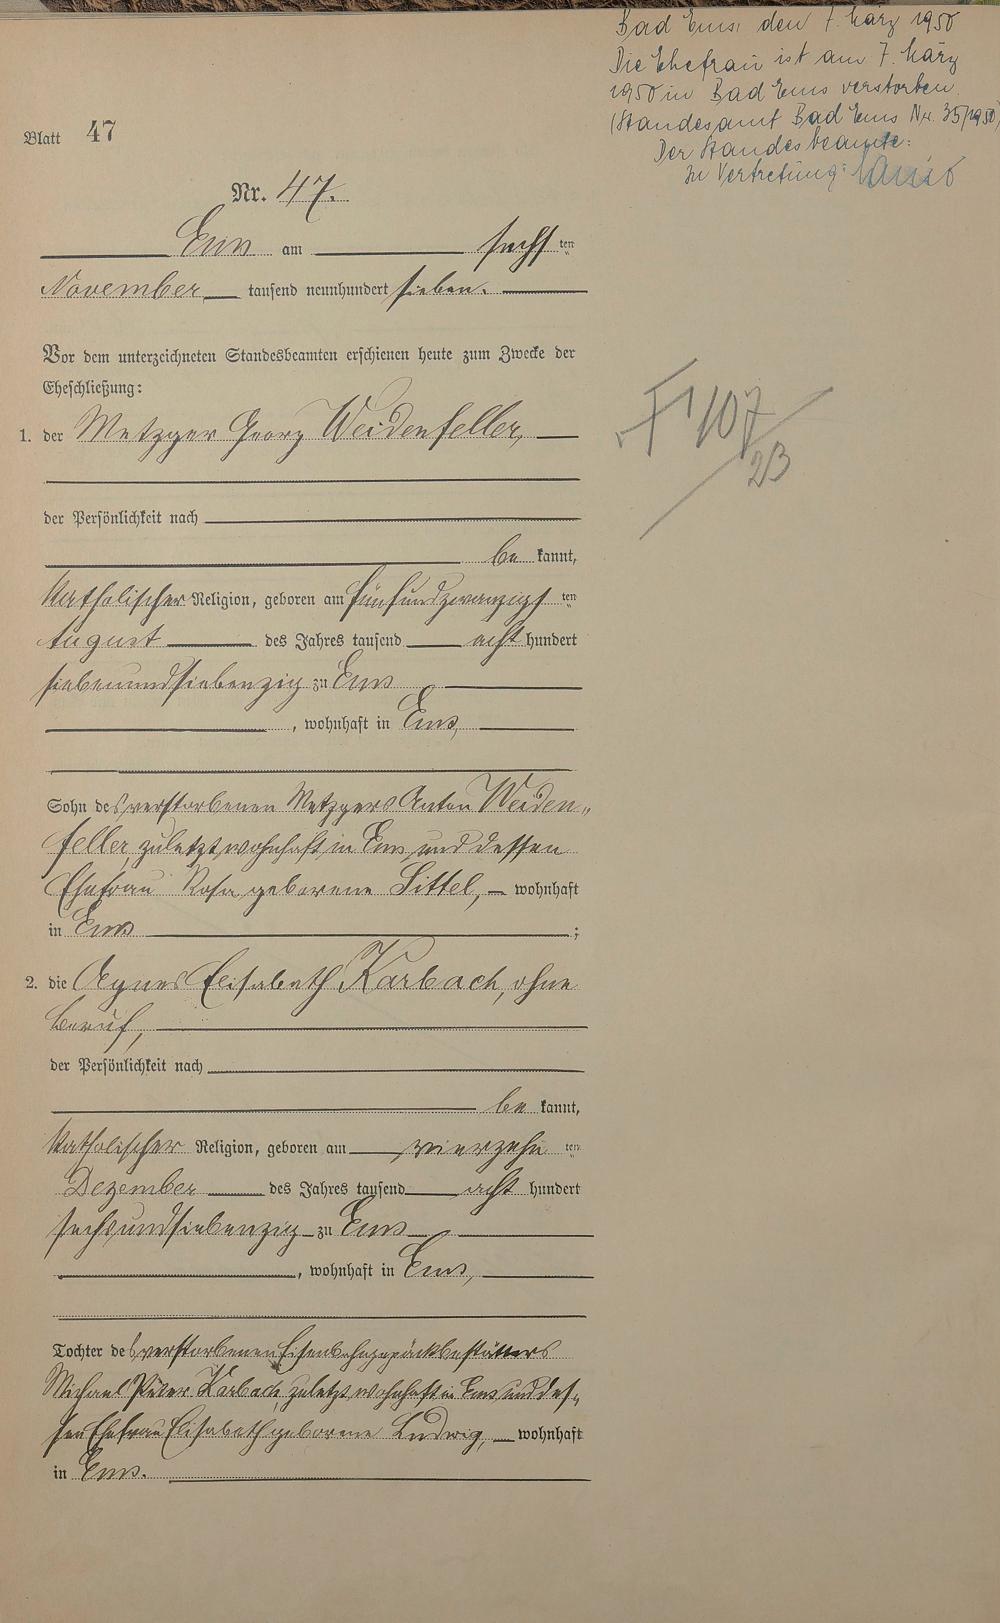 Bad Ems, den 7. März 1950
Die Ehefrau ist am 7. März
1950 in Bad Ems verstorben.
(Standesamt Bad Ems Nr. 35/1950)
Der Standesbeamte:
In Vertretung:
Blatt 47
Nr. 47.
Ems am sechsten
November tausend neunhundert sieben.
Vor dem unterzeichneten Standesbeamten erschienen heute zum Zwecke der
Eheschließung:
1. der Metzger Georg Weidenfeller,
F 107
23
der Persönlichkeit nach
bekannt,
katholischer Religion, geboren am fünfundzwanzigsten
August des Jahres tausend achthundert
siebenundsiebenzig zu Ems
, wohnhaft in Ems,
Sohn des verstorbenen Metzgers Anton Weiden-
feller, zuletzt wohnhaft in Ems und dessen
Ehefrau Rosa geborene Sittel, wohnhaft
in Ems ;
2. die Agnes Elisabeth Karbach, ohne
Beruf,
der Persönlichkeit nach
bekannt,
katholischer Religion, geboren am vierzehnten
Dezember des Jahres tausend achthundert
sechsundsiebenzig zu Ems
, wohnhaft in Ems,
Tochter des verstorbenen Eisenbahngepäckbestätters
Michael Peter Karbach, zuletzt wohnhaft in Ems und des-
sen Ehefrau Elisabeth geborene Ludwig, wohnhaft
in Ems.